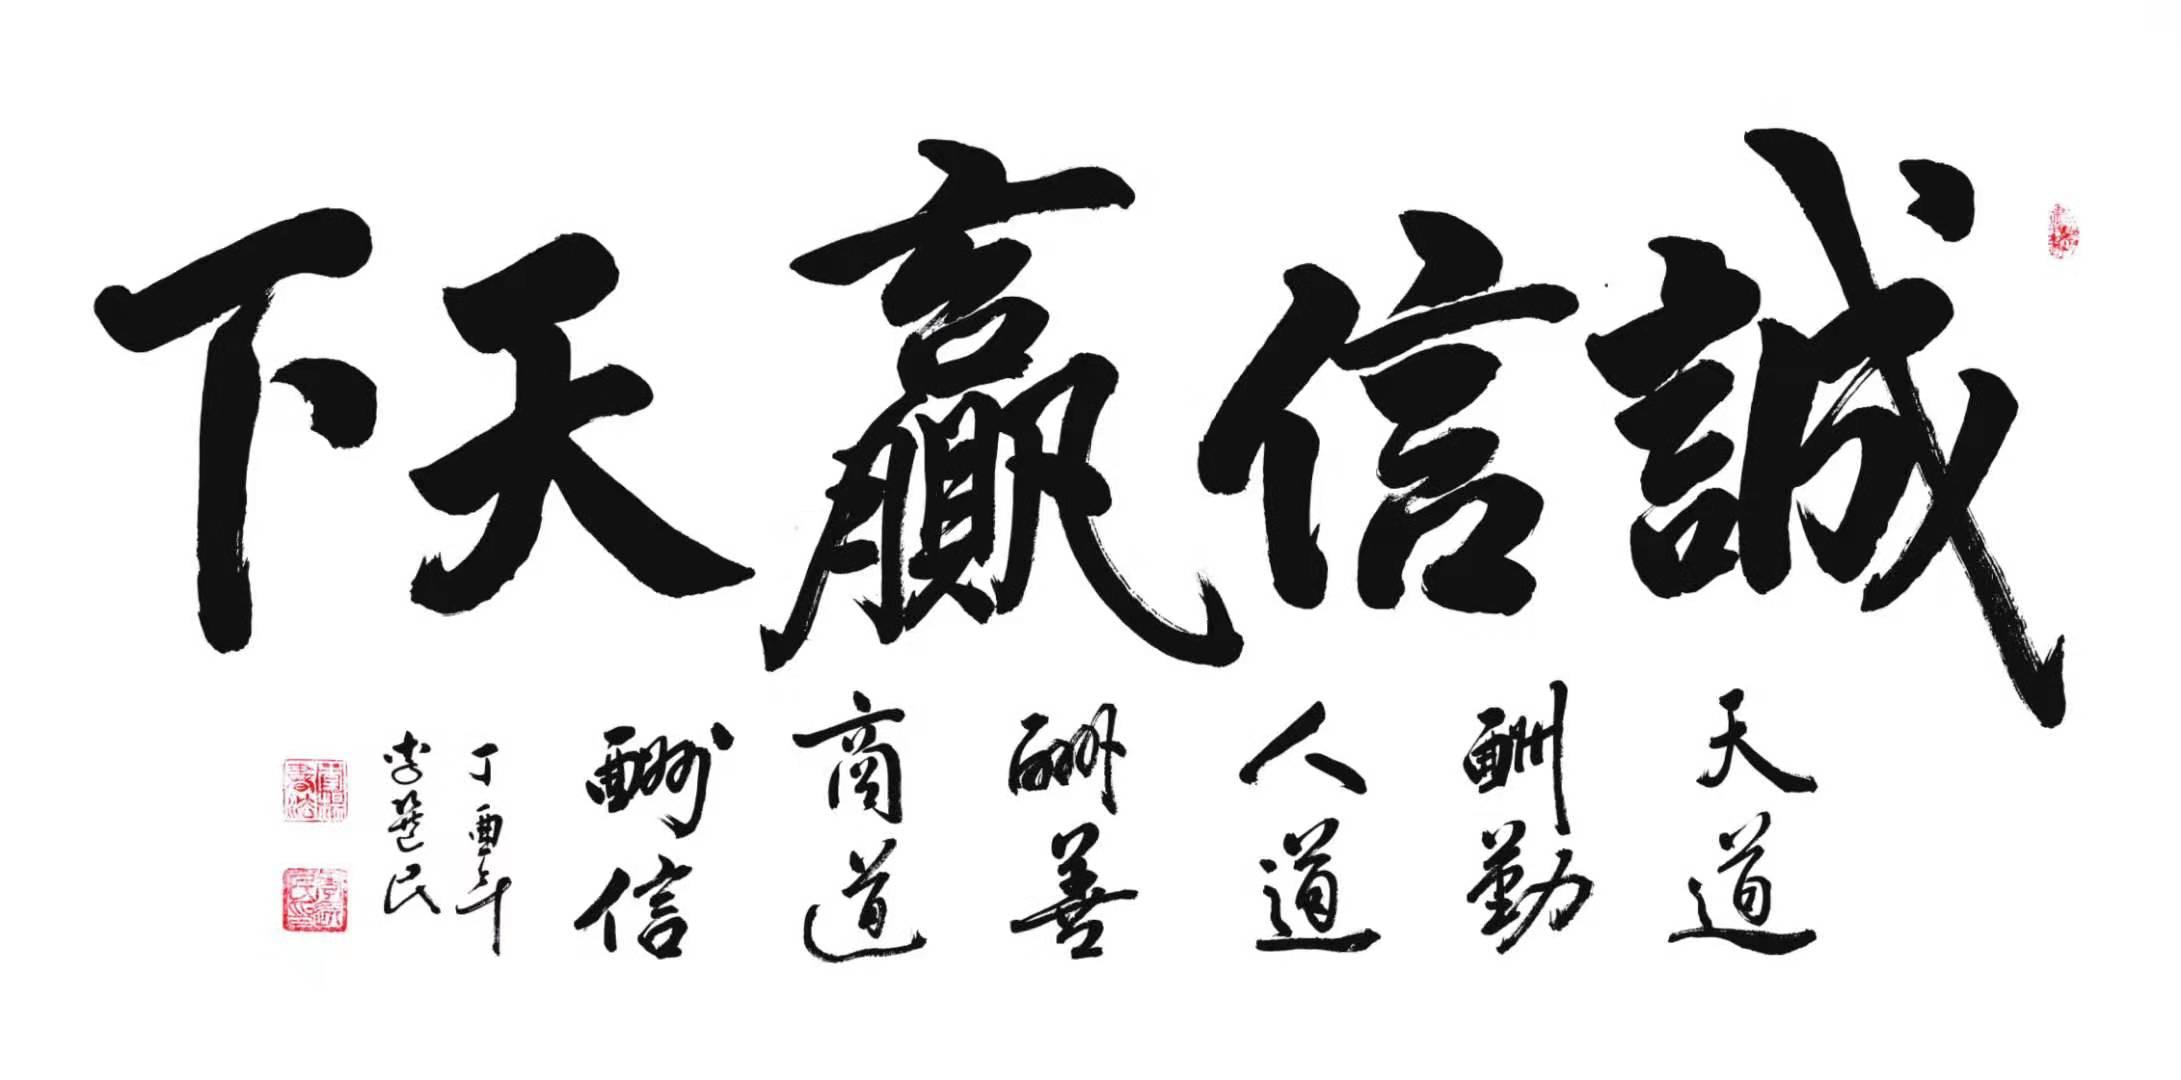 誠信贏天下
天道
酬勤
人道
酬善
商道
酬信
丁酉年